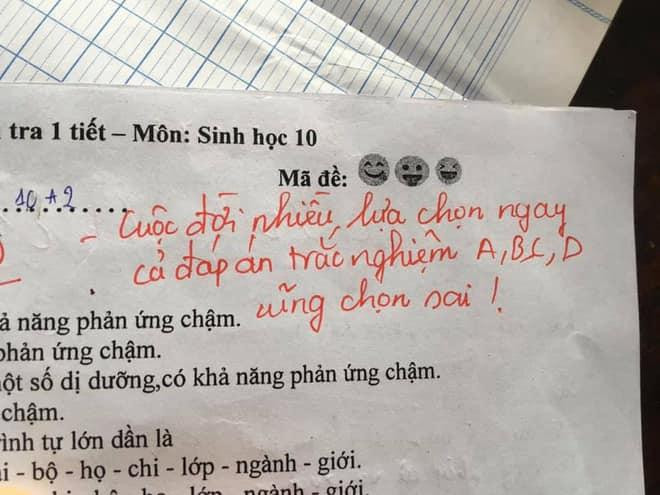 tra 1 tiết – Môn: Sinh học 10
Mã đề:
10A2
- Cuộc đời nhiều lựa chọn ngay
cả đáp án trắc nghiệm A, B, C, D
cũng chọn sai !
ả năng phản ứng chậm.
phản ứng chậm.
một số dị dưỡng,có khả năng phản ứng chậm.
chậm.
rình tự lớn dần là
ài - bộ - họ - chi - lớp - ngành - giới.
bộ - họ - lớp - ngành - giới.